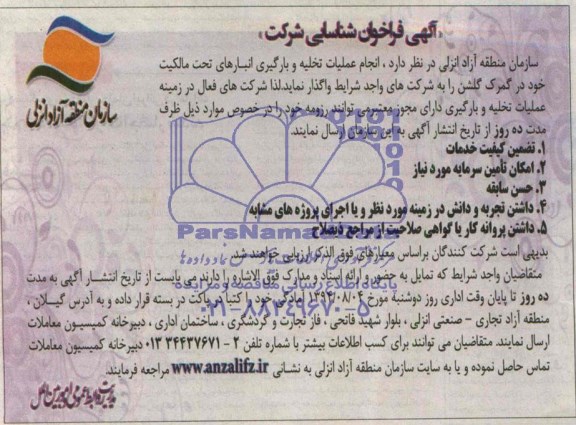 «آگهی فراخوان شناسایی شرکت»
سازمان منطقه آزاد انزلی
سازمان منطقه آزاد انزلی در نظر دارد ، انجام عملیات تخلیه و بارگیری انبارهای تحت مالکیت
خود در گمرک گلشن را به شرکت های واجد شرایط واگذار نماید.لذا شرکت های فعال در زمینه
عملیات تخلیه و بارگیری دارای مجوز معتبر می توانند رزومه خود را در خصوص موارد ذیل ظرف
مدت ده روز از تاریخ انتشار آگهی به این سازمان ارسال نمایند.
۱. تضمین کیفیت خدمات
۲. امکان تأمین سرمایه مورد نیاز
۳. حسن سابقه
۴. داشتن تجربه و دانش در زمینه مورد نظر و یا اجرای پروژه های مشابه
۵. داشتن پروانه کار یا گواهی صلاحیت از مراجع ذیصلاح
ParsNamadData
بدیهی است شرکت کنندگان براساس معیارهای فوق الذکر ارزیابی خواهند شد.
متقاضیان واجد شرایط که تمایل به حضور و ارائه اسناد و مدارک فوق الاشاره را دارند می بایست از تاریخ انتشار آگهی به مدت
پایگاه اطلاع رسانی مناقصه و مزایده
ده روز تا پایان وقت اداری روز دوشنبه مورخ ۱۳۹۴/۰۸/۰۴ آمادگی خود را کتباً در پاکت در بسته قرار داده و به آدرس گیلان ،
۰۲۱-۸۸۳۴۹۶۷۰-۵
منطقه آزاد تجاری - صنعتی انزلی ، بلوار شهید فاتحی ، فاز تجارت و گردشگری ، ساختمان اداری ، دبیرخانه کمیسیون معاملات
ارسال نمایند. متقاضیان می توانند برای کسب اطلاعات بیشتر با شماره تلفن ۲ - ۰۱۳۳۴۴۳۷۶۷۱ دبیرخانه کمیسیون معاملات
تماس حاصل نموده و یا به سایت سازمان منطقه آزاد انزلی به نشانی www.anzalifz.ir مراجعه فرمایند.
مدیریت روابط عمومی و امور بین الملل